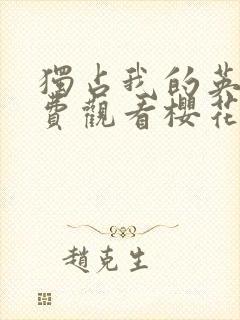 獨占我的英
費觀看櫻花
趙克生